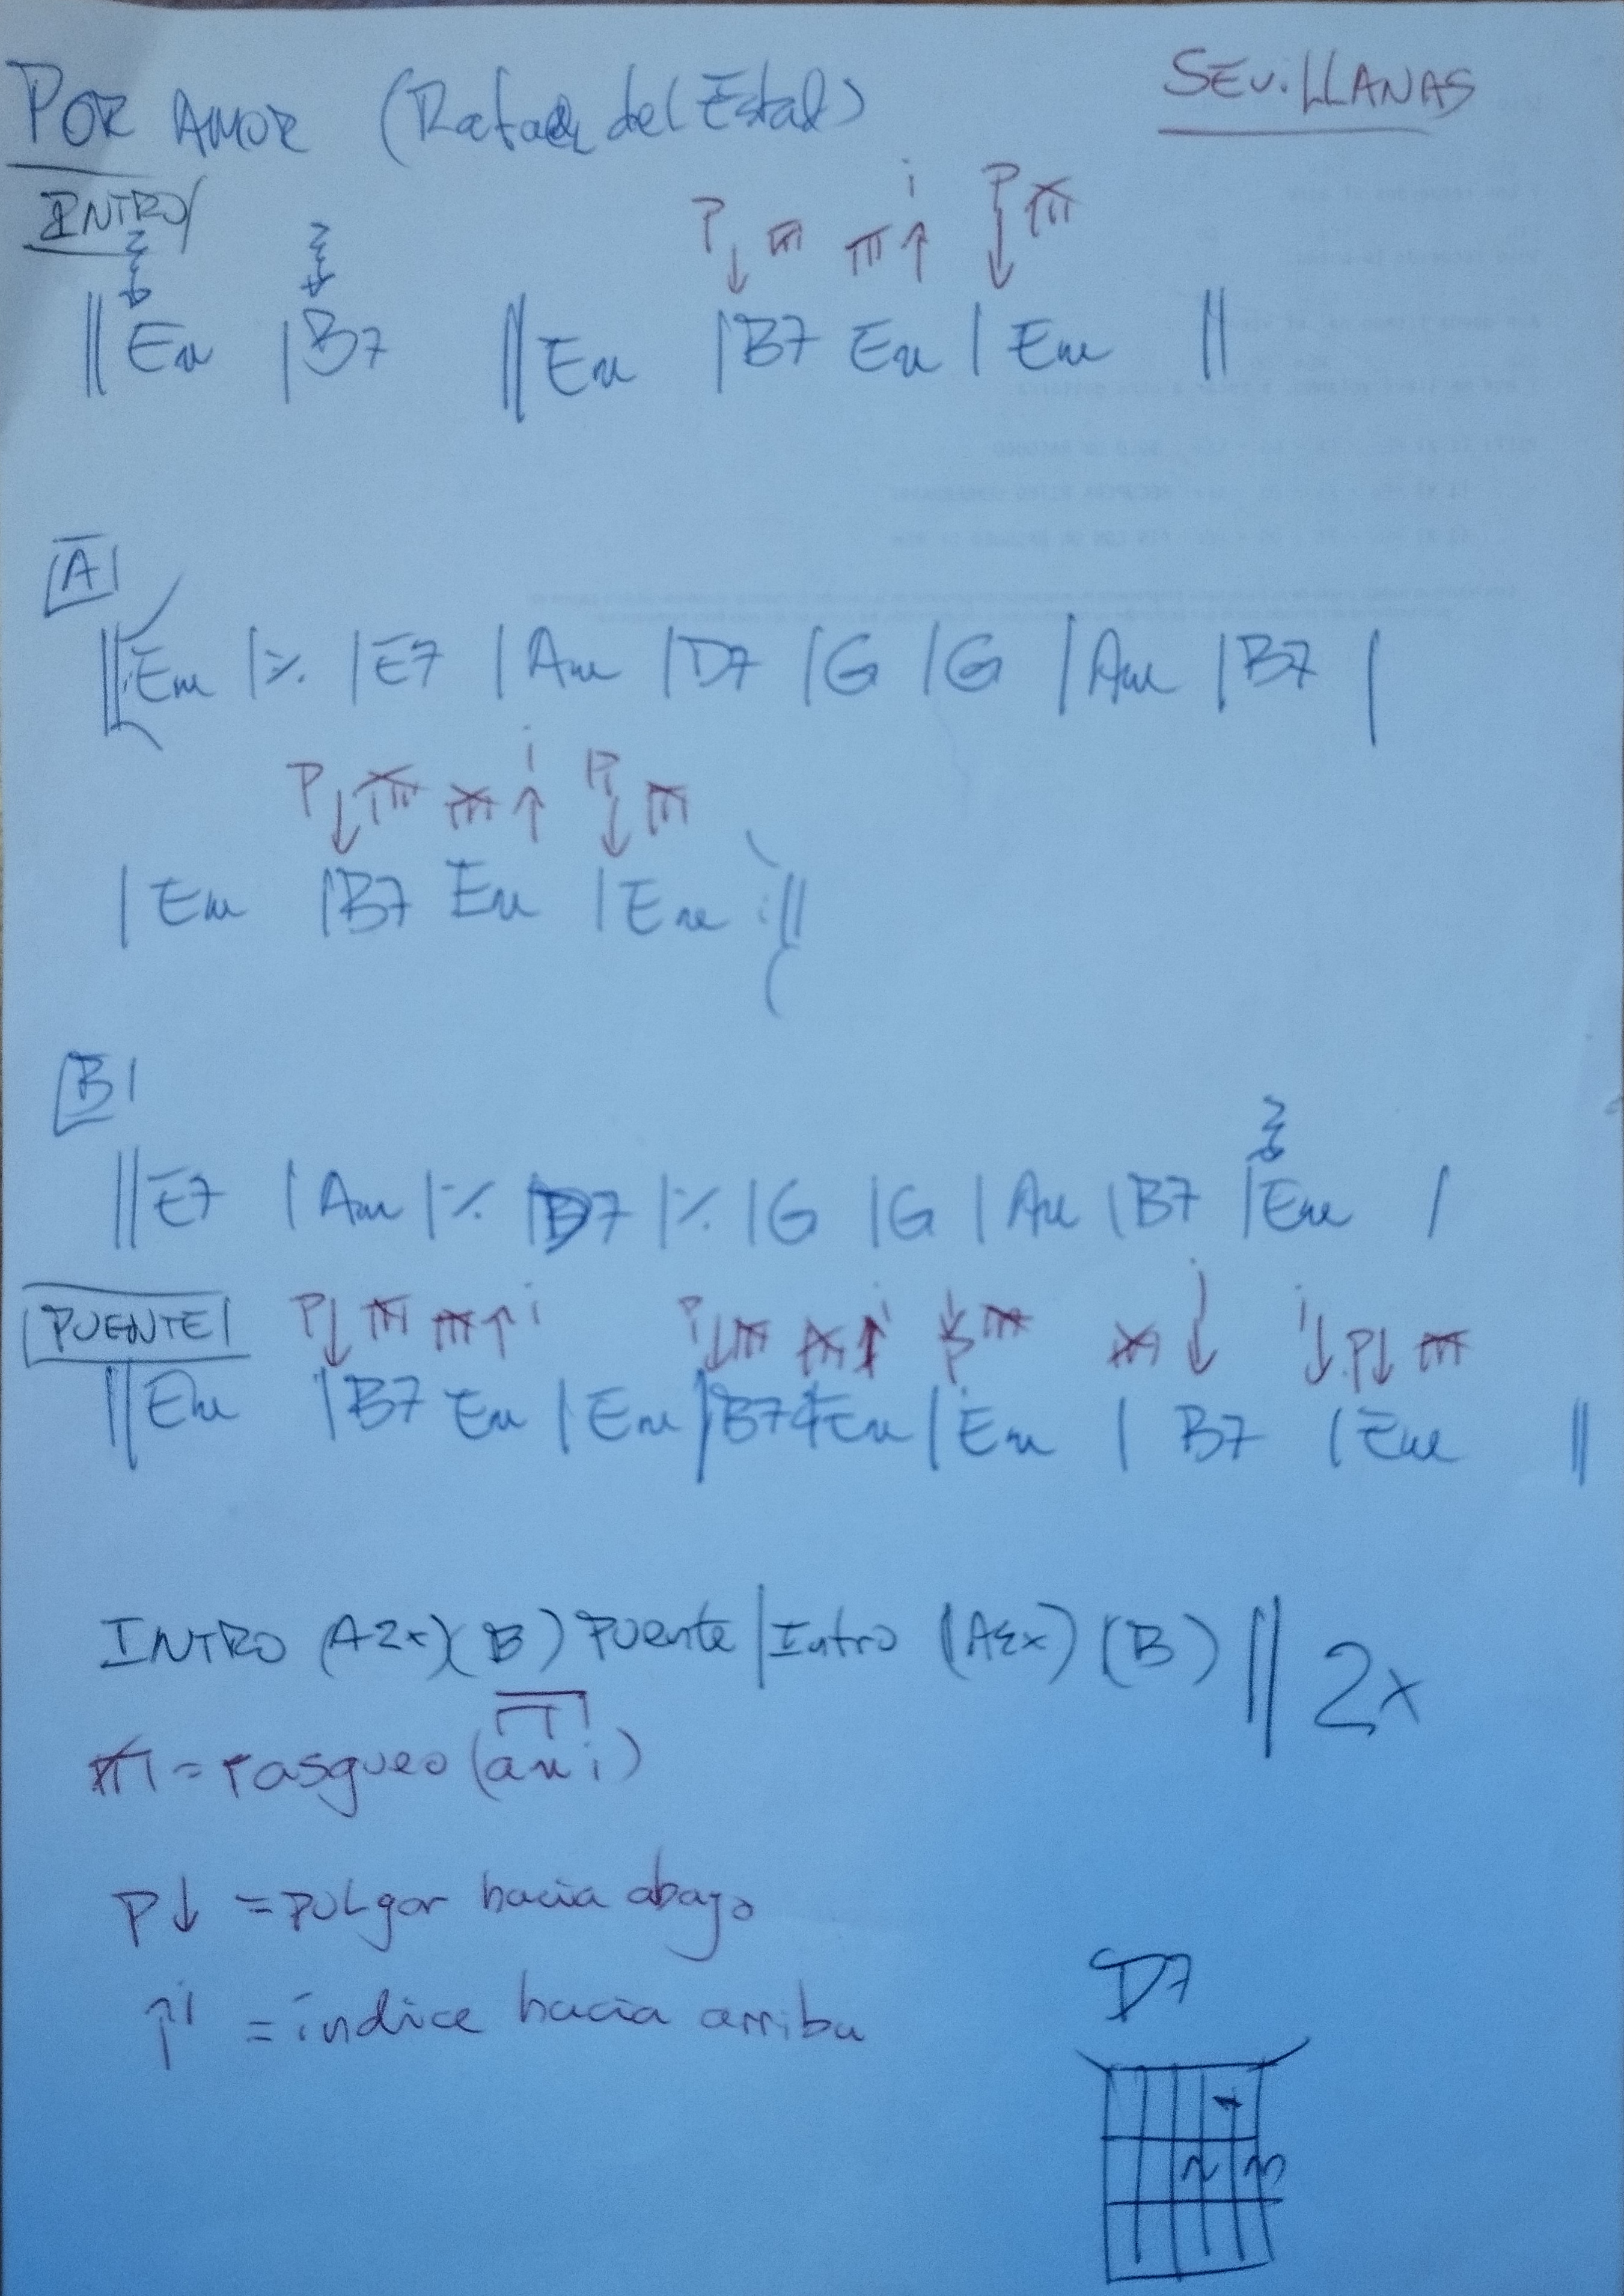 POR AMOR (Rafael del Estad) SEVILLANAS
INTRO
P i P
|| Em | B7 || Em | B7 Em | Em ||
A
||: Em | % | E7 | Am | D7 | G | G | Am | B7 |
P i P
| Em | B7 Em | Em :||
B
|| E7 | Am | % | D7 | % | G | G | Am | B7 | Em |
PUENTE P i P i P i i P
|| Em | B7 Em | Em | B7 Em | Em | B7 | Em ||
INTRO (A2x)(B) Puente | Intro (A2x) (B) || 2x
= rasgueo (ami)
P↓ = pulgar hacia abajo
↑i = índice hacia arriba
D7
1
2 3